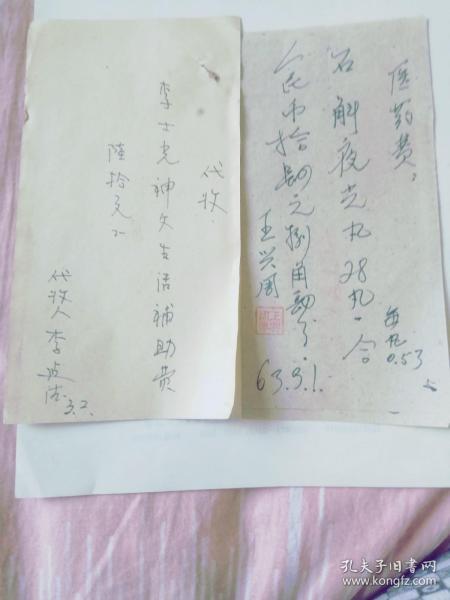 医药费:
石斛夜光丸28丸一合
每丸
0.53
人民币拾肆元捌角肆分.
王兴周
63.3.1.
代收
李士光神父生活補助费
陸拾元
代收人李
3.2.
孔夫子旧书网
www.kongfz.com